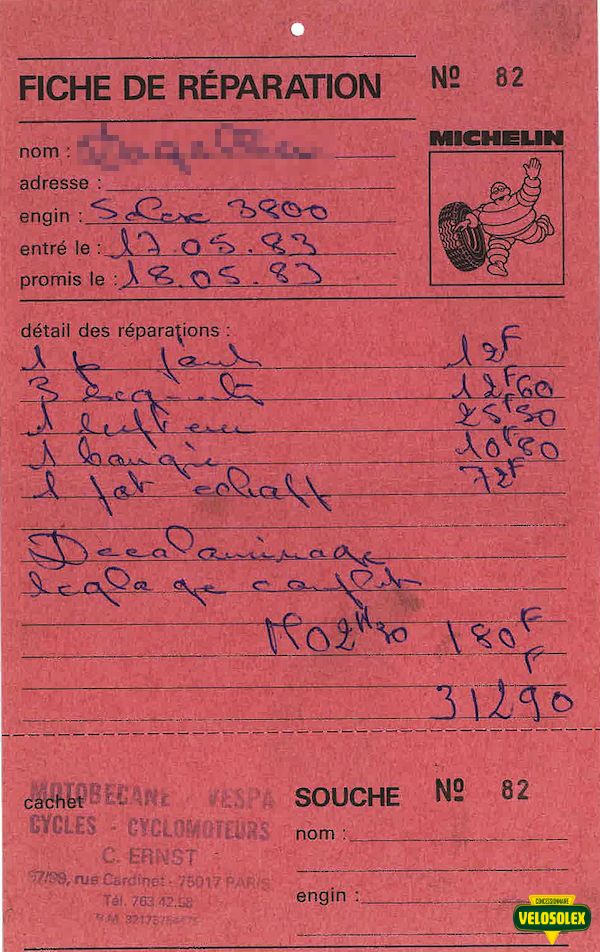 FICHE DE RÉPARATION
Nº 82
MICHELIN
nom :
adresse :
engin : Solex 3800
entré le : 17.05.83
promis le : 18.05.83
détail des réparations :
1 p joint 12F
3 segments 12F60
1 25F50
1 bougie 10F80
1 pot echapt 72F
Decalaminage
reglage complet
MO 2H30 180F
312F90
cachet
MOTOBECANE VESPA
CYCLES - CYCLOMOTEURS
C. ERNST
97/99, rue Cardinet - 75017 PARIS
Tél. 763 42.58
R.M.
SOUCHE Nº 82
nom :
engin :
CONCESSIONNAIRE
VELOSOLEX